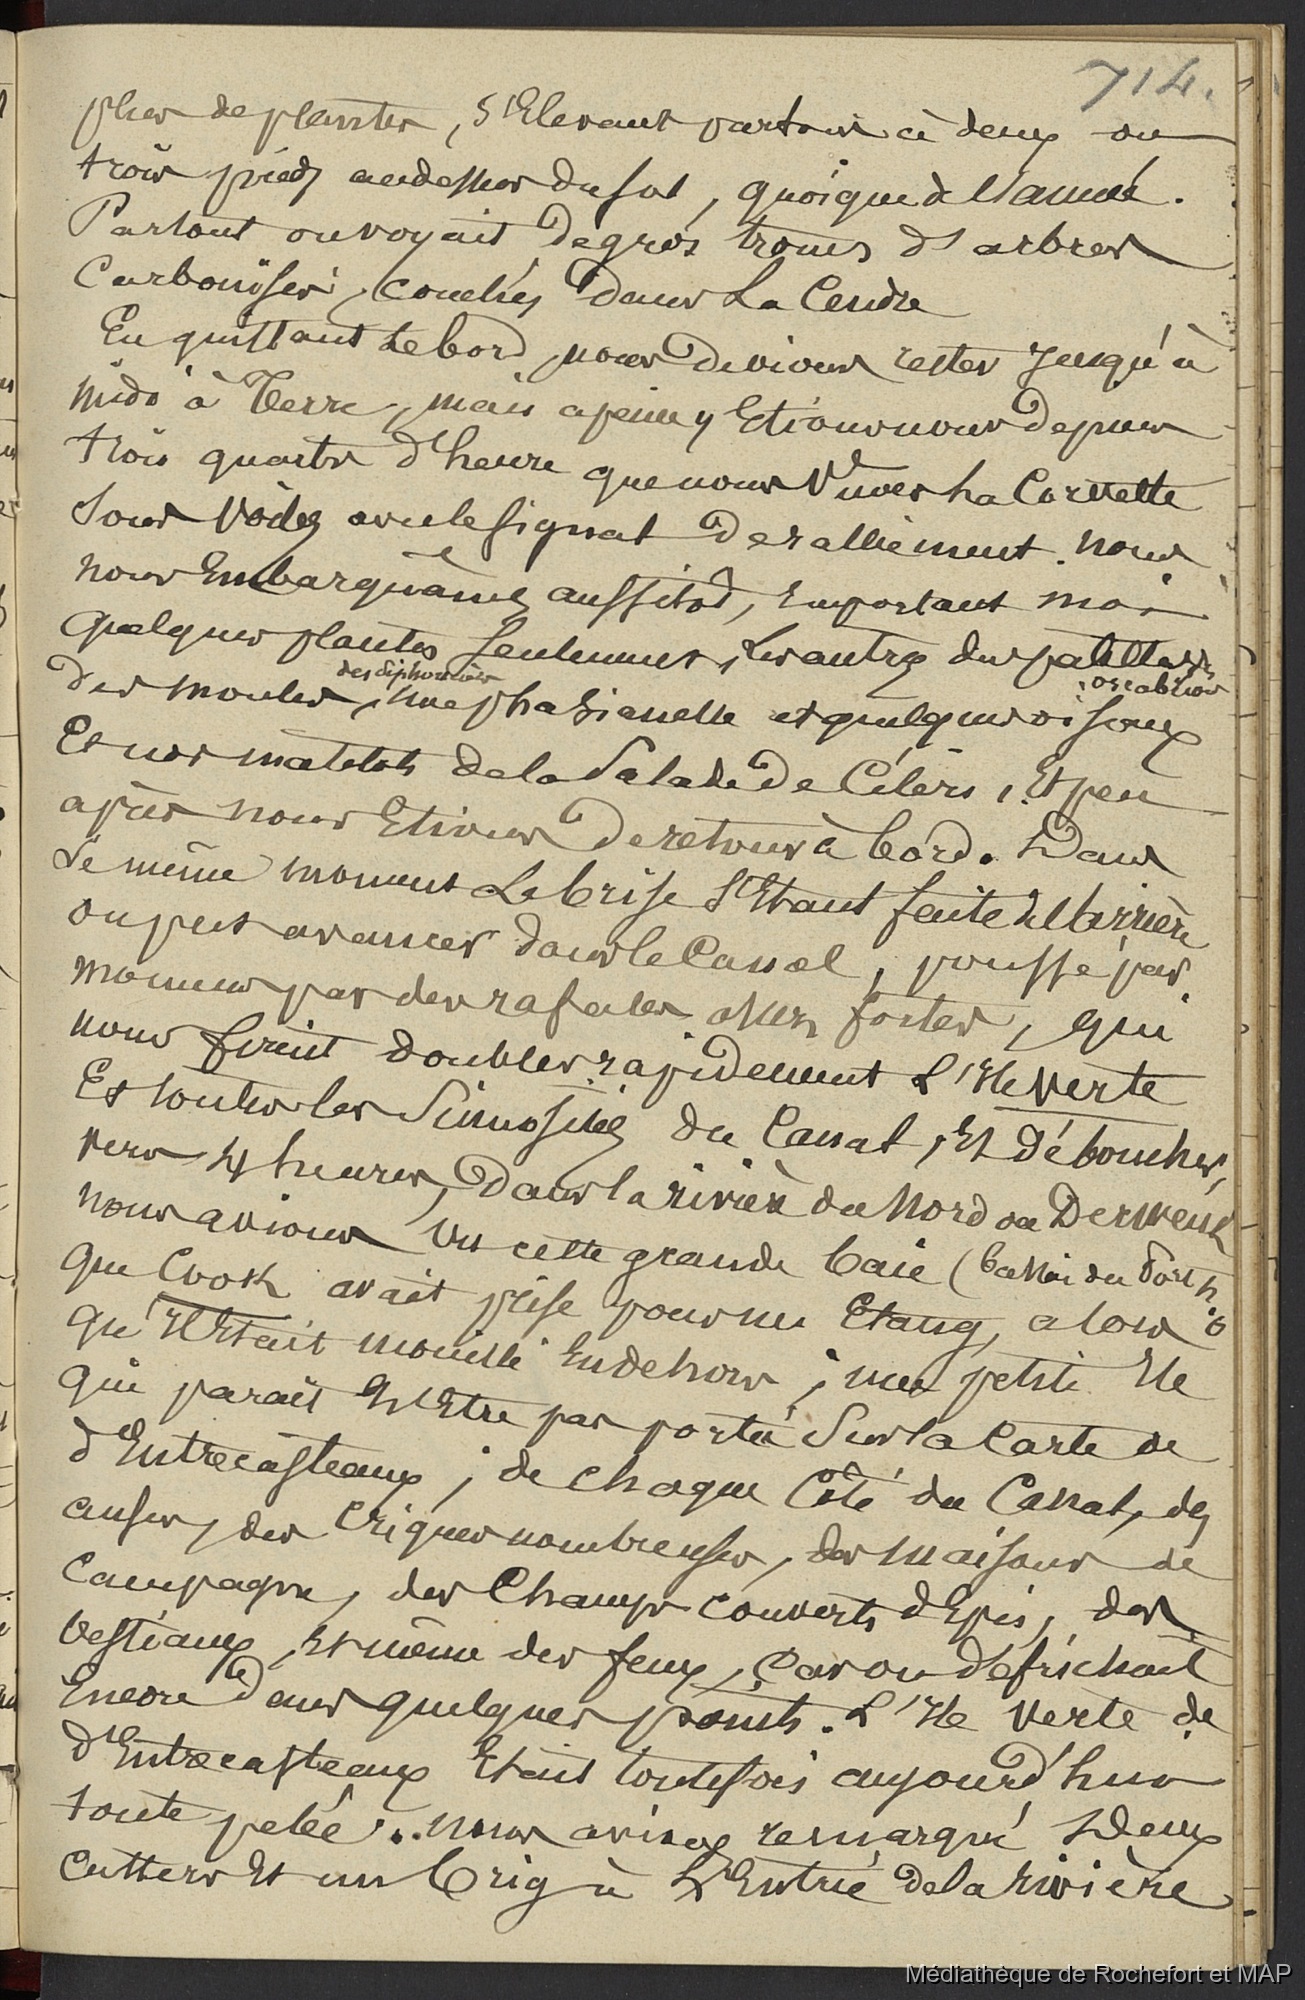 714.
plus de plantes, s'Elevant partout à deux ou
trois pieds audessus du sol, quoique de l'année.
Partout on voyait de gros troncs d'arbres
Carbonisés, couchés dans La Cendre
En quittant Le bord, nous devions rester jusqu'à
midi à Terre, mais a peine y Etions nous depuis
trois quarts d'heure que nous Vimes La Corvette
Sous Voiles avec le signal de ralliement. nous
nous Embarquâmes aussitôt, Emportant moi
quelques plantes seulement, Les autres des patelles,
oscabrions
des siphonaires
des moules, une phasianelle et quelques oiseaux
Et nos matelots de la Salade de Céleri, Et peu
après nous Etions de retour à bord. Dans
Le même moment La brise s'Etant faite de l'arrière
on put avancer dans le Canal, poussé par
momens par des rafales assez fortes, qui
nous firent doubler rapidement L'Ile Verte
Et toutes les Sinuosités du Canal, Et déboucher,
vers 4 heures, dans la rivière du Nord ou Derwent
nous avions Vu cette grande baie (bassin du Port N.o
que Cook avait prise pour un Etang, alors
qu'il Etait mouillé En dehors; une petite Ile
qui parait N'Etre pas portée Sur la Carte de
d'Entrecasteaux; de chaque Côté du Canal, des
anses, des Criques nombreuses, des maisons de
Campagne, des Champs couverts d'Epis, des
bestiaux, Et même des feux, car on défrichait
Encore dans quelques points. L'Ile Verte de
d'Entrecasteaux Etait toutefois aujourd'hui
toute pelée.. nous avions remarqué Deux
Cutters Et un brig à L'Entrée de la rivière
Médiathèque de Rochefort et MAP